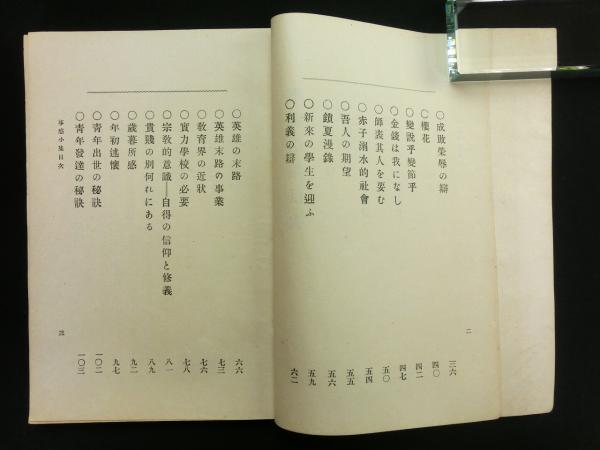 ○成敗榮辱の辯 三六
○櫻花 四〇
○變說乎變節乎 四二
○金錢は我になし 四七
○師表其人を要む 五〇
○赤子溺水的社會 五四
○吾人の期望 五五
○鎖夏漫錄 五六
○新來の學生を迎ふ 五九
○利義の辯 六二
二
○英雄の末路 六六
○英雄末路の事業 七三
○敎育界の近狀 七六
○實力學校の必要 七八
○宗敎的意識―自得の信仰と修義 八一
○貴賤の別何れにある 八九
○歲暮所感 九二
○年初述懷 九七
○靑年出世の秘訣 一〇二
○靑年發達の秘訣 一〇三
感小集目次
三